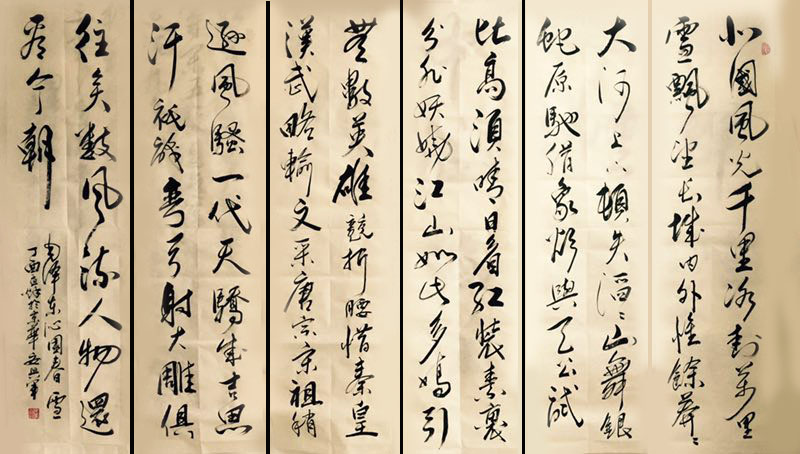 北國風光千里冰封萬里
雪飄望長城內外惟餘莽〻
大河上下頓失滔〻山舞銀
蛇原馳蜡象欲與天公試
比高須晴日看紅裝素裹
分外妖嬈江山如此多嬌引
無數英雄競折腰惜秦皇
漢武略輸文采唐宗宋祖稍
遜風騷一代天驕成吉思
汗祇識彎弓射大雕俱
往矣數風流人物還
看今朝
毛澤東沁園春雪
丁酉於京華興軍